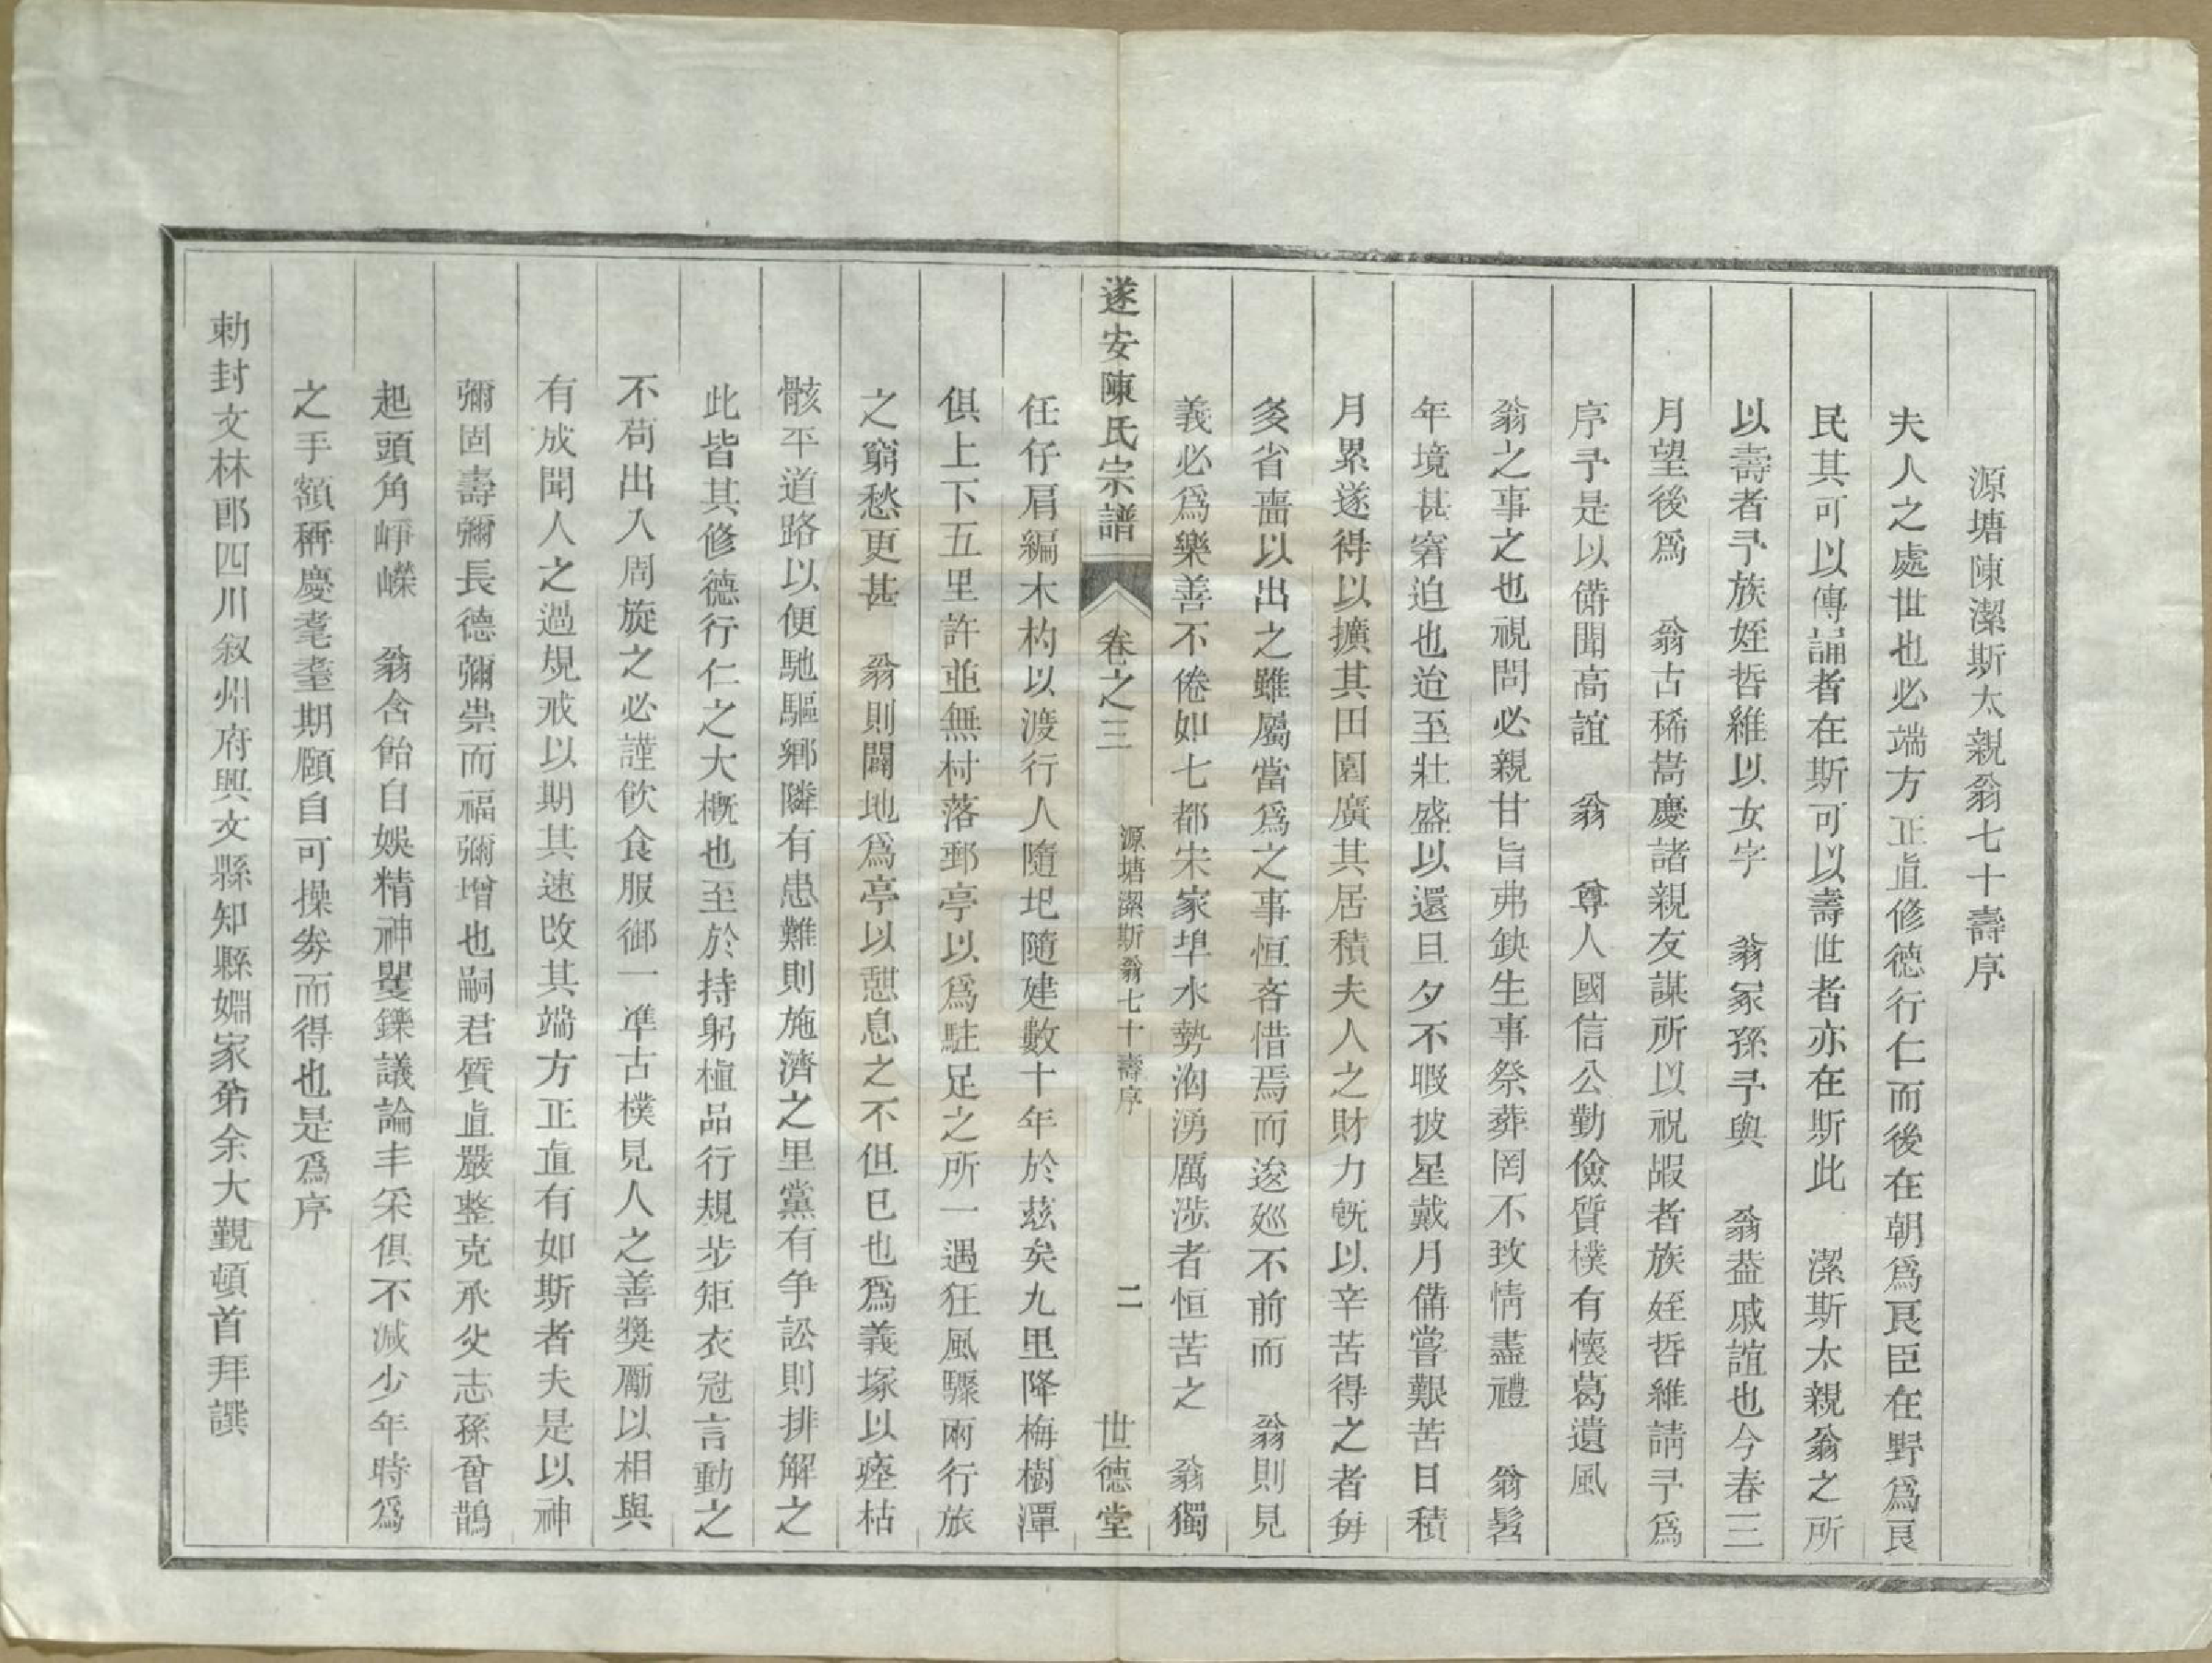 源塘陳潔斯太親翁七十壽序
夫人之處世也必端方正直修德行仁而後在朝爲良臣在野爲良
民其可以傳誦者在斯可以壽世者亦在斯此 潔斯太親翁之所
以壽者予族姪哲維以女字 翁冢孫予與 翁葢戚誼也今春三
月望後爲 翁古稀嵩慶諸親友謀所以祝嘏者族姪哲維請予爲
序予是以備聞高誼 翁 尊人國信公勤儉質樸有懷葛遺風
翁之事之也視問必親甘旨弗缺生事祭葬罔不致情盡禮 翁髫
年境甚窘迫也迨至壯盛以還旦夕不暇披星戴月備嘗艱苦日積
月累遂得以擴其田園廣其居積夫人之財力旣以辛苦得之者每
多省嗇以出之雖屬當爲之事恒吝惜焉而逡廵不前而 翁則見
義必爲樂善不倦如七都宋家埠水勢洶湧厲涉者恒苦之 翁獨
遂安陳氏宗譜 卷之三 源塘潔斯翁七十壽序 二 世德堂
任仔肩編木杓以渡行人隨圯隨建數十年於茲矣九里降梅樹潭
俱上下五里許並無村落郵亭以爲駐足之所一遇狂風驟雨行旅
之窮愁更甚 翁則闢地爲亭以憩息之不但已也爲義塚以瘞枯
骸平道路以便馳驅鄉隣有患難則施濟之里黨有争訟則排解之
此皆其修德行仁之大槪也至於持躬植品行規步矩衣冠言動之
不苟出入周旋之必謹飮食服御一凖古樸見人之善奬勵以相與
有成聞人之過規戒以期其速改其端方正直有如斯者夫是以神
彌固壽彌長德彌崇而福彌增也嗣君質直嚴整克承父志孫曾鵲
起頭角崢嶸 翁含飴自娛精神矍鑠議論丰采俱不減少年時爲
之手額稱慶耄耋期頤自可操劵而得也是爲序
勅封文林郎四川叙州府興文縣知縣姻家弟余大觀頓首拜譔